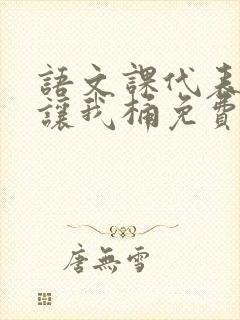 語文課代表
讓我桶免費
唐無雪